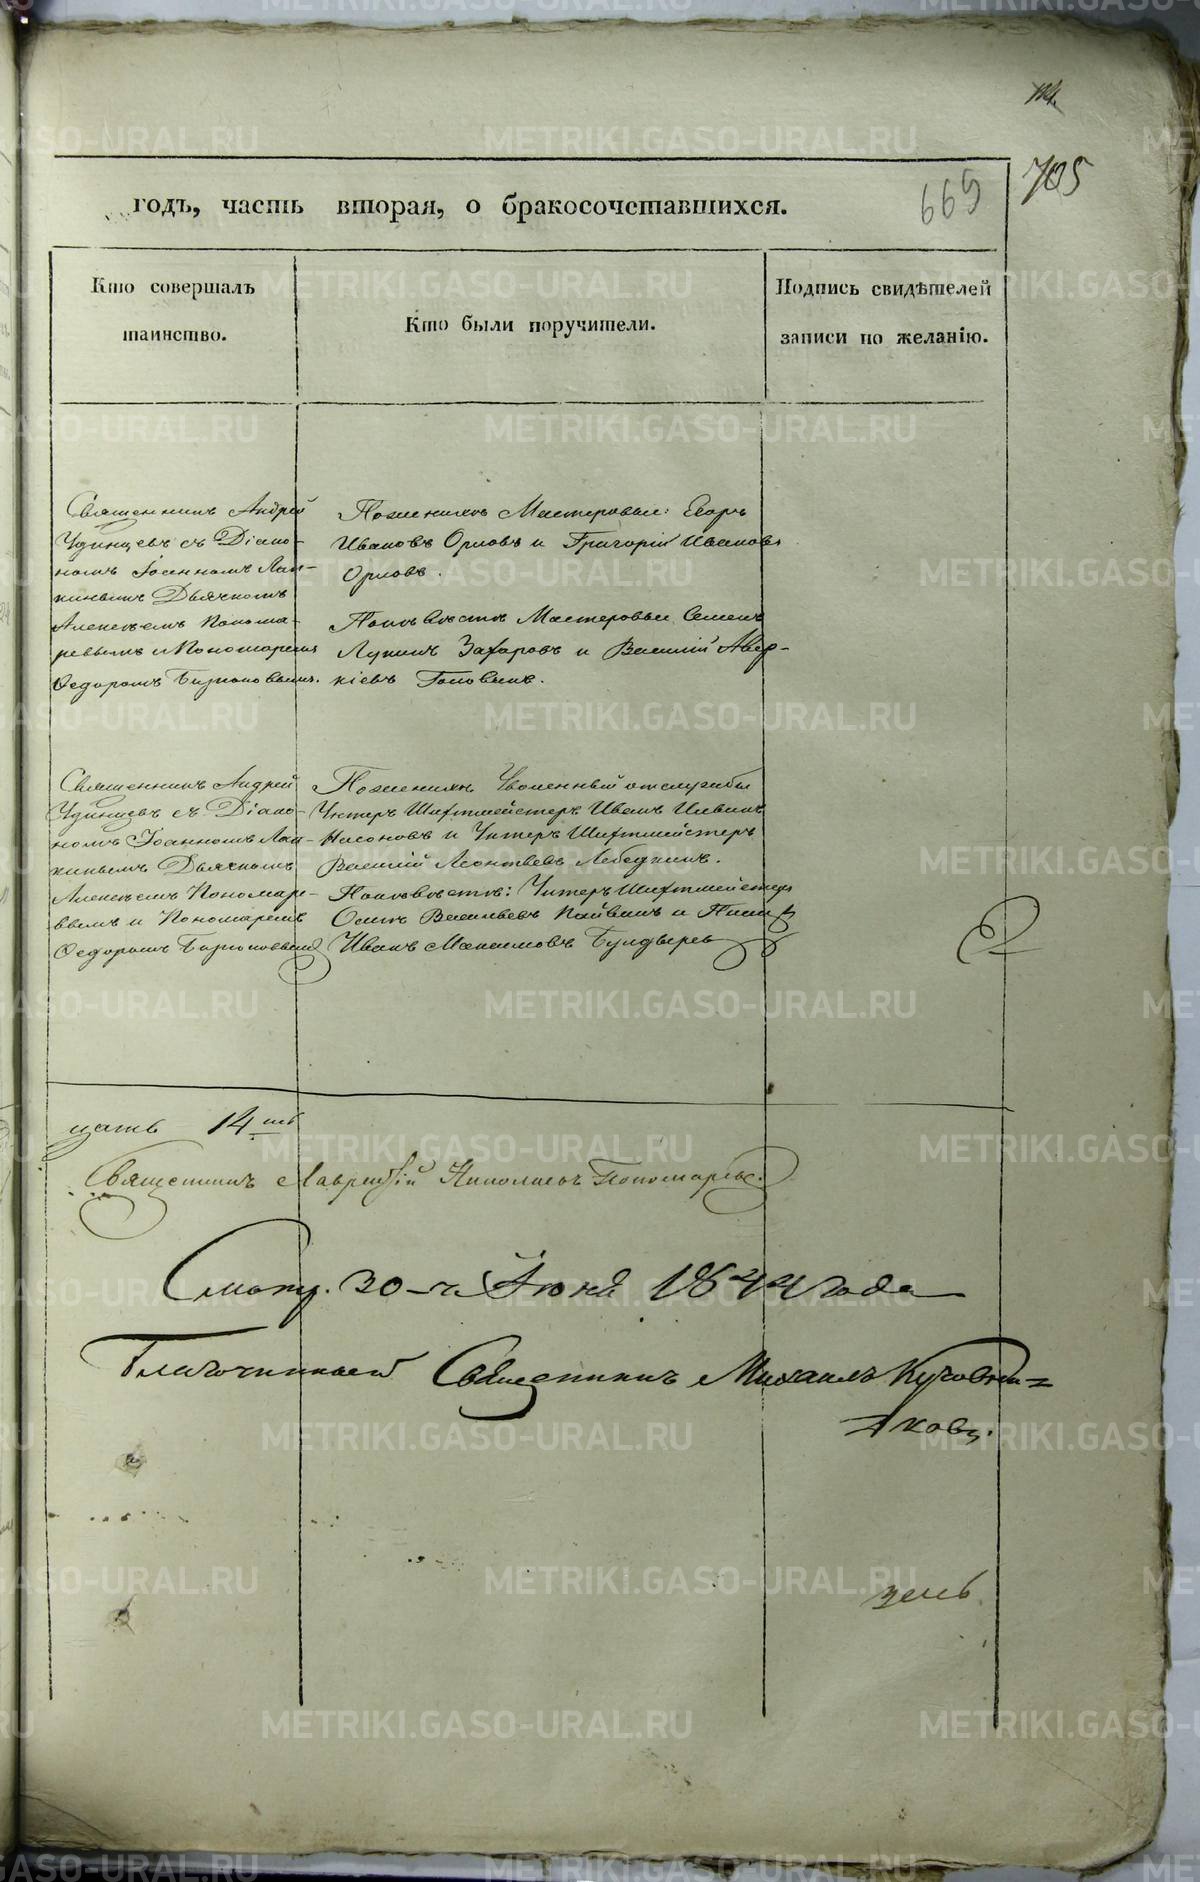 705
665
годъ, часть вторая, о бракосочетавшихся.
Кто совершалъ
таинство.
Кто были поручители.
Подпись свидѣтелей
записи по желанію.
Священникъ Андрей
Удинцевъ съ Діако-
номъ Іоанномъ Лап-
кинымъ Дьячкомъ
Алексѣемъ Понома-
ревымъ и Пономаремъ
Ѳедоромъ Бирюковымъ.
По женихѣ Мастеровые: Егоръ
Ивановъ Орловъ и Григорій Ивановъ
Орловъ.
По невѣстѣ Мастеровые Семенъ
Лукинъ Захаровъ и Василій Авер-
кіевъ Головинъ.
Священникъ Андрей
Удинцевъ съ Діако-
номъ Іоанномъ Лап-
кинымъ Дьячкомъ
Алексѣемъ Пономаре-
вымъ и Пономаремъ
Ѳедоромъ Бирюковымъ
По женихѣ Уволенный от службы
Унтеръ Шихтмейстеръ Иванъ
Насоновъ и Унтеръ Шихтмейстеръ
Василій Леонтьевъ Лебедкинъ.
По невѣстѣ: Унтеръ Шихтмейстеръ
Васильевъ и
Иванъ Максимовъ Булдыревъ
цать 14ть
Священникъ Лаврентій Николаевъ Пономаревъ.
Смотр. 30-го Іюня 1844 года
Благочинный Священникъ Михаилъ